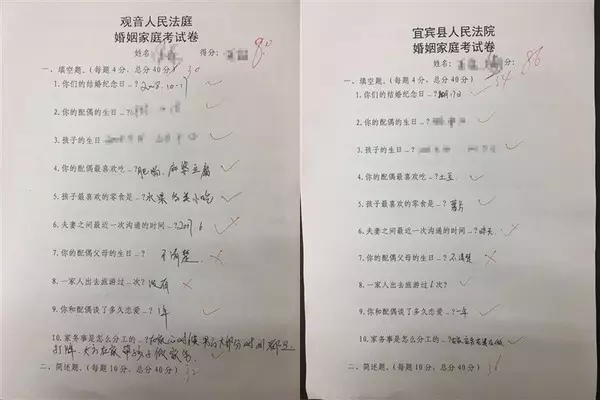 观音人民法庭
婚姻家庭考试卷
姓名: 得分: 80
一、填空题。(每题4分、总分40分) 30
1.你们的结婚纪念日..? 2008.10.17
2.你的配偶的生日..?
3.孩子的生日..?
4.你的配偶最喜欢吃..? 肥肠、麻婆豆腐
5.孩子最喜欢的零食是..? 水果 各类小吃
6.夫妻之间最近一次沟通的时间..? 2017 6
7.你的配偶父母的生日..? 不清楚
8.一家人出去旅游过..次? 没有
9.你和配偶谈了多久恋爱..? 1年
10.家务事是怎么分工的..?
二、简述题。(每题10分、总分40分) 32
宜宾县人民法院
婚姻家庭考试卷
姓名: 得分: 86
一、填空题。(每题4分、总分40分) 34
1.你们的结婚纪念日..?
2.你的配偶的生日..?
3.孩子的生日..?
4.你的配偶最喜欢吃..? 土豆
5.孩子最喜欢的零食是..? 薯片
6.夫妻之间最近一次沟通的时间..? 昨天
7.你的配偶父母的生日..? 不清楚
8.一家人出去旅游过6次?
9.你和配偶谈了多久恋爱..? 一年
10.家务事是怎么分工的..?
二、简述题。(每题10分、总分40分)